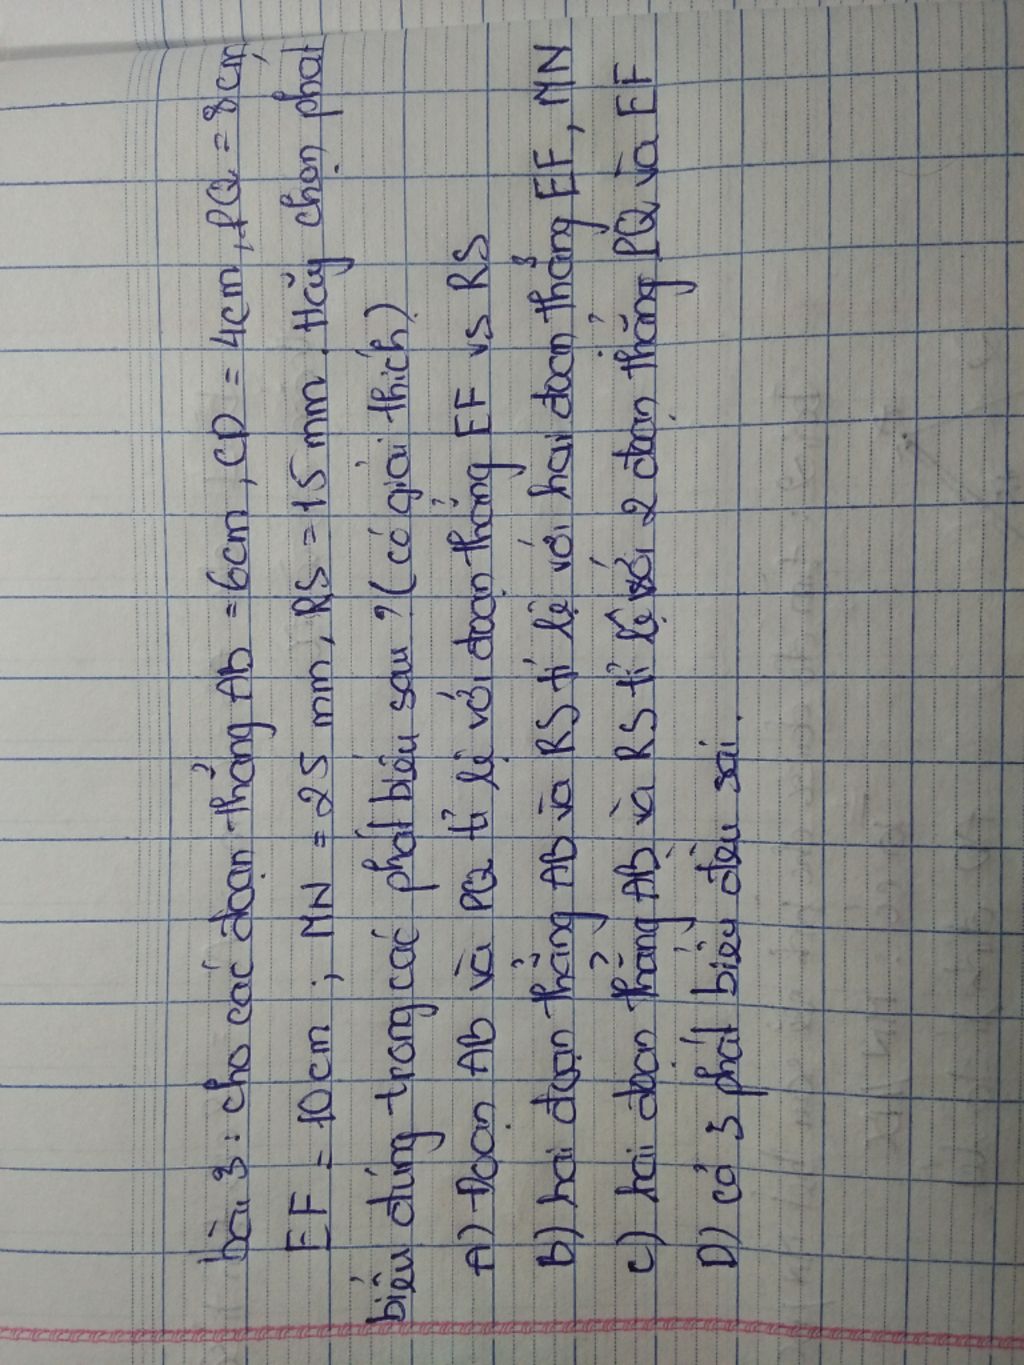 bài 3: cho các đoạn thẳng AB = 6cm, CD = 4cm, PQ = 8cm,
EF = 10cm ; MN = 25 mm, RS = 15 mm. Hãy chọn phát
biểu đúng trong các phát biểu sau? (có giải thích)
A) Đoạn AB và PQ tỉ lệ với đoạn thẳng EF vs RS
B) hai đoạn thẳng AB và RS tỉ lệ với hai đoạn thẳng EF, MN
C) hai đoạn thẳng AB và RS tỉ lệ với 2 đoạn thẳng PQ và EF
D) cả 3 phát biểu đều sai.